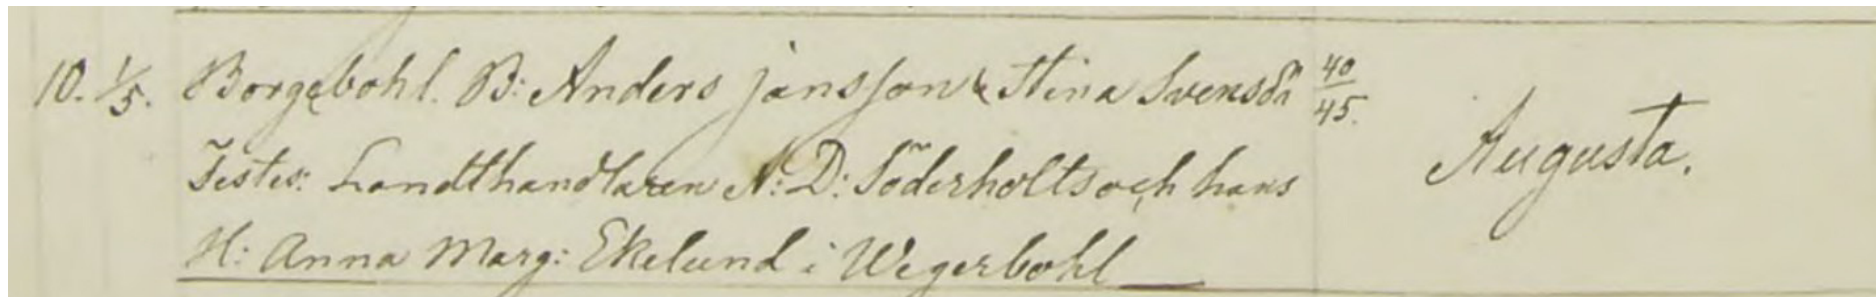 10. 1/5. Borgebohl. B: Anders jansson & Stina Svensdr 40/45. Augusta.
Testes: Landthandlaren N: D: Söderholts och hans
H: Anna Marg: Ekelund i Wegerbohl